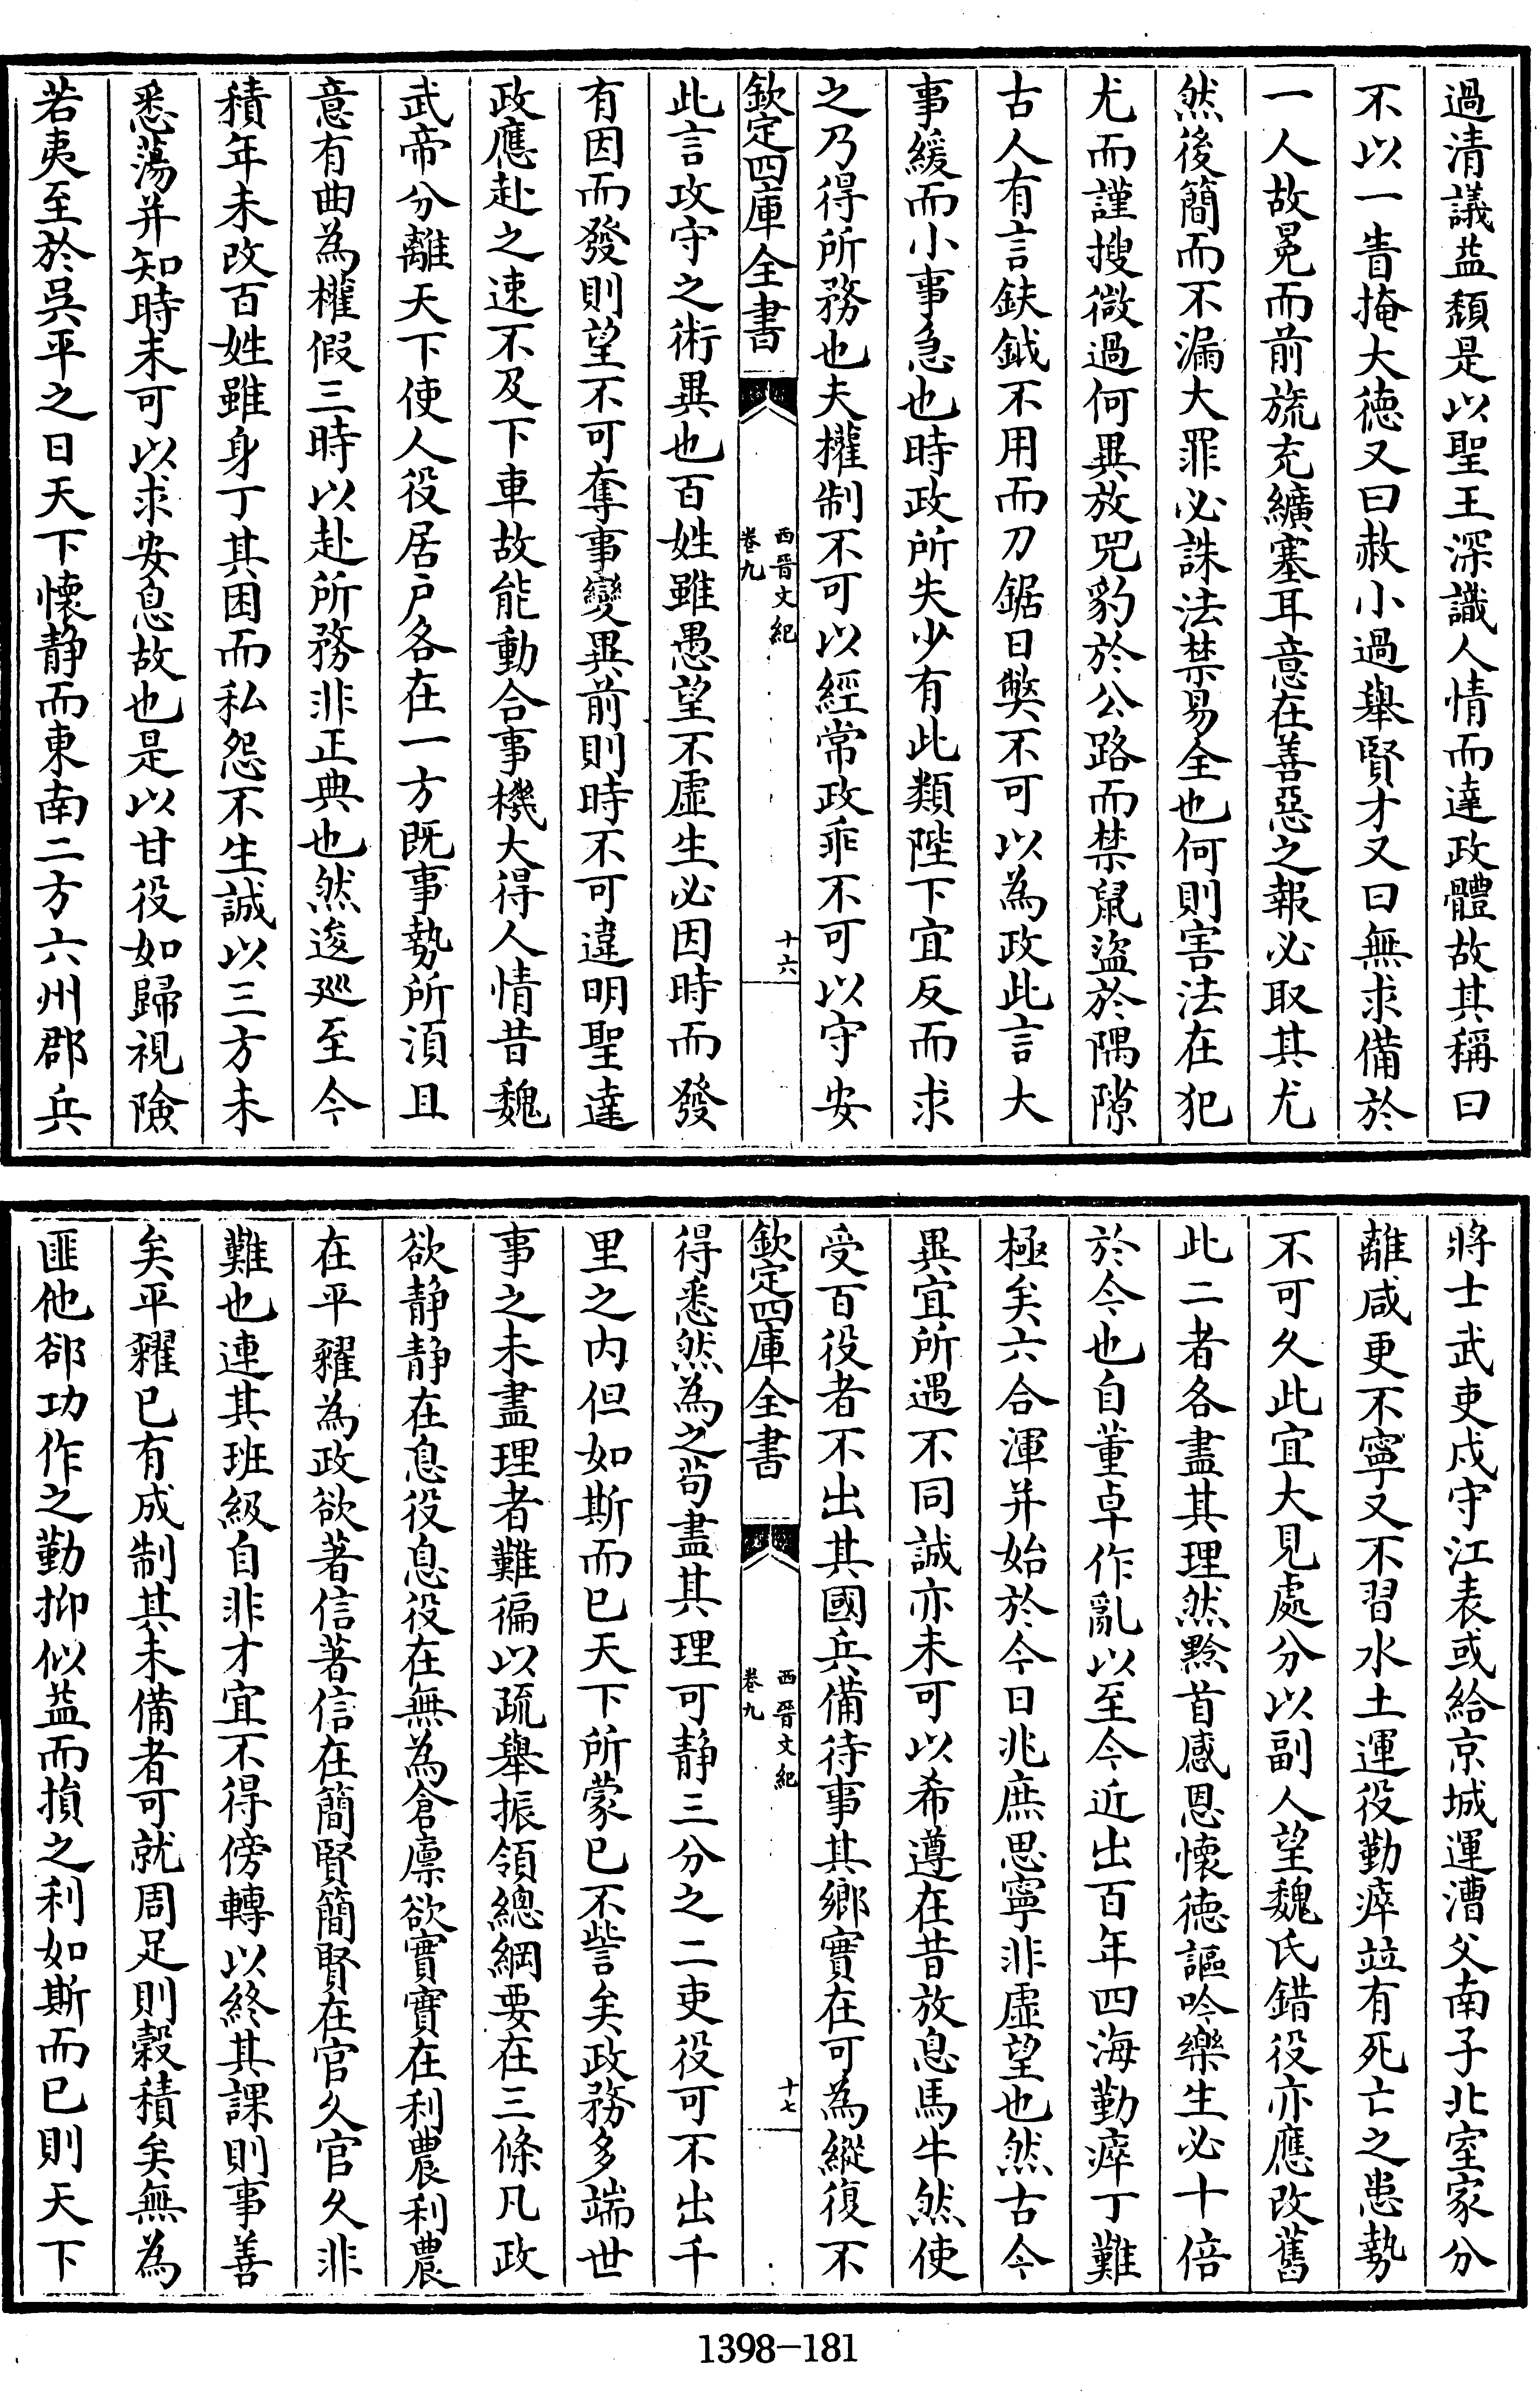 過清議益頽是以聖王深識人情而達政體故其稱曰
不以一眚掩大德又曰赦小過舉賢才又曰無求備於
一人故冕而前旒充纊塞耳意在善惡之報必取其尤
然後簡而不漏大罪必誅法禁易全也何則害法在犯
尤而謹搜微過何異放兕豹於公路而禁鼠盜於隅隙
古人有言鈇鉞不用而刀鋸日獘不可以為政此言大
事緩而小事急也時政所失少有此類陛下宜反而求
之乃得所務也夫權制不可以經常政乖不可以守安
欽定四庫全書
西晉文紀
卷九
十六
此言攻守之術異也百姓雖愚望不虛生必因時而發
有因而發則望不可奪事變異前則時不可違明聖達
政應赴之速不及下車故能動合事機大得人情昔魏
武帝分離天下使人役居戶各在一方既事勢所須且
意有曲為權假三時以赴所務非正典也然逡廵至今
積年未改百姓雖身丁其困而私怨不生誠以三方未
悉蕩并知時未可以求安息故也是以甘役如歸視險
若夷至於吳平之日天下懷静而東南二方六州郡兵
將士武吏戍守江表或給京城運漕父南子北室家分
離咸更不寧又不習水土運役勤瘁竝有死亡之患勢
不可久此宜大見處分以副人望魏氏錯役亦應改舊
此二者各盡其理然黔首感恩懷德謳吟樂生必十倍
於今也自董卓作亂以至今近出百年四海勤瘁丁難
極矣六合渾并始於今日兆庶思寧非虛望也然古今
異宜所遇不同誠亦未可以希遵在昔放息馬牛然使
受百役者不出其國兵備待事其鄉實在可為縱復不
欽定四庫全書
西晉文紀
卷九
十七
得悉然為之茍盡其理可静三分之二吏役可不出千
里之内但如斯而已天下所蒙已不訾矣政務多端世
事之未盡理者難徧以疏舉振領總綱要在三條凡政
欲静静在息役息役在無為倉廪欲實實在利農利農
在平糴為政欲著信著信在簡賢簡賢在官久官久非
難也連其班級自非才宜不得傍轉以終其課則事善
矣平糴已有成制其未備者可就周足則穀積矣無為
匪他郤功作之勤抑似益而損之利如斯而已則天下
1398-181